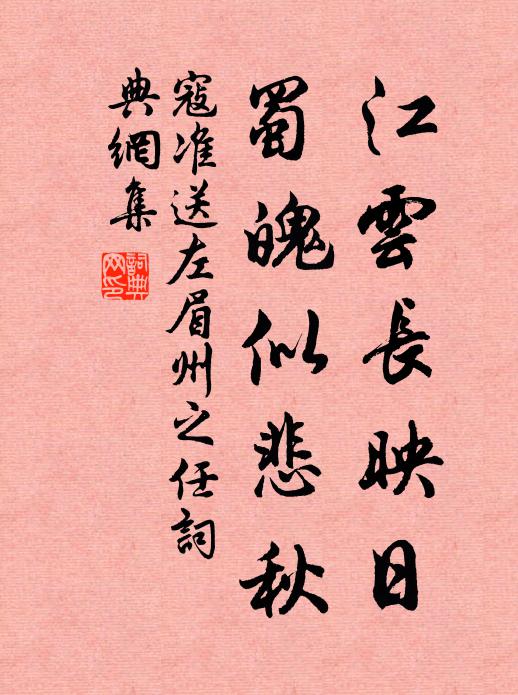 江雲長映日
蜀魄似悲秋
寇准送左眉州之任詞
典網集
詞典
网印